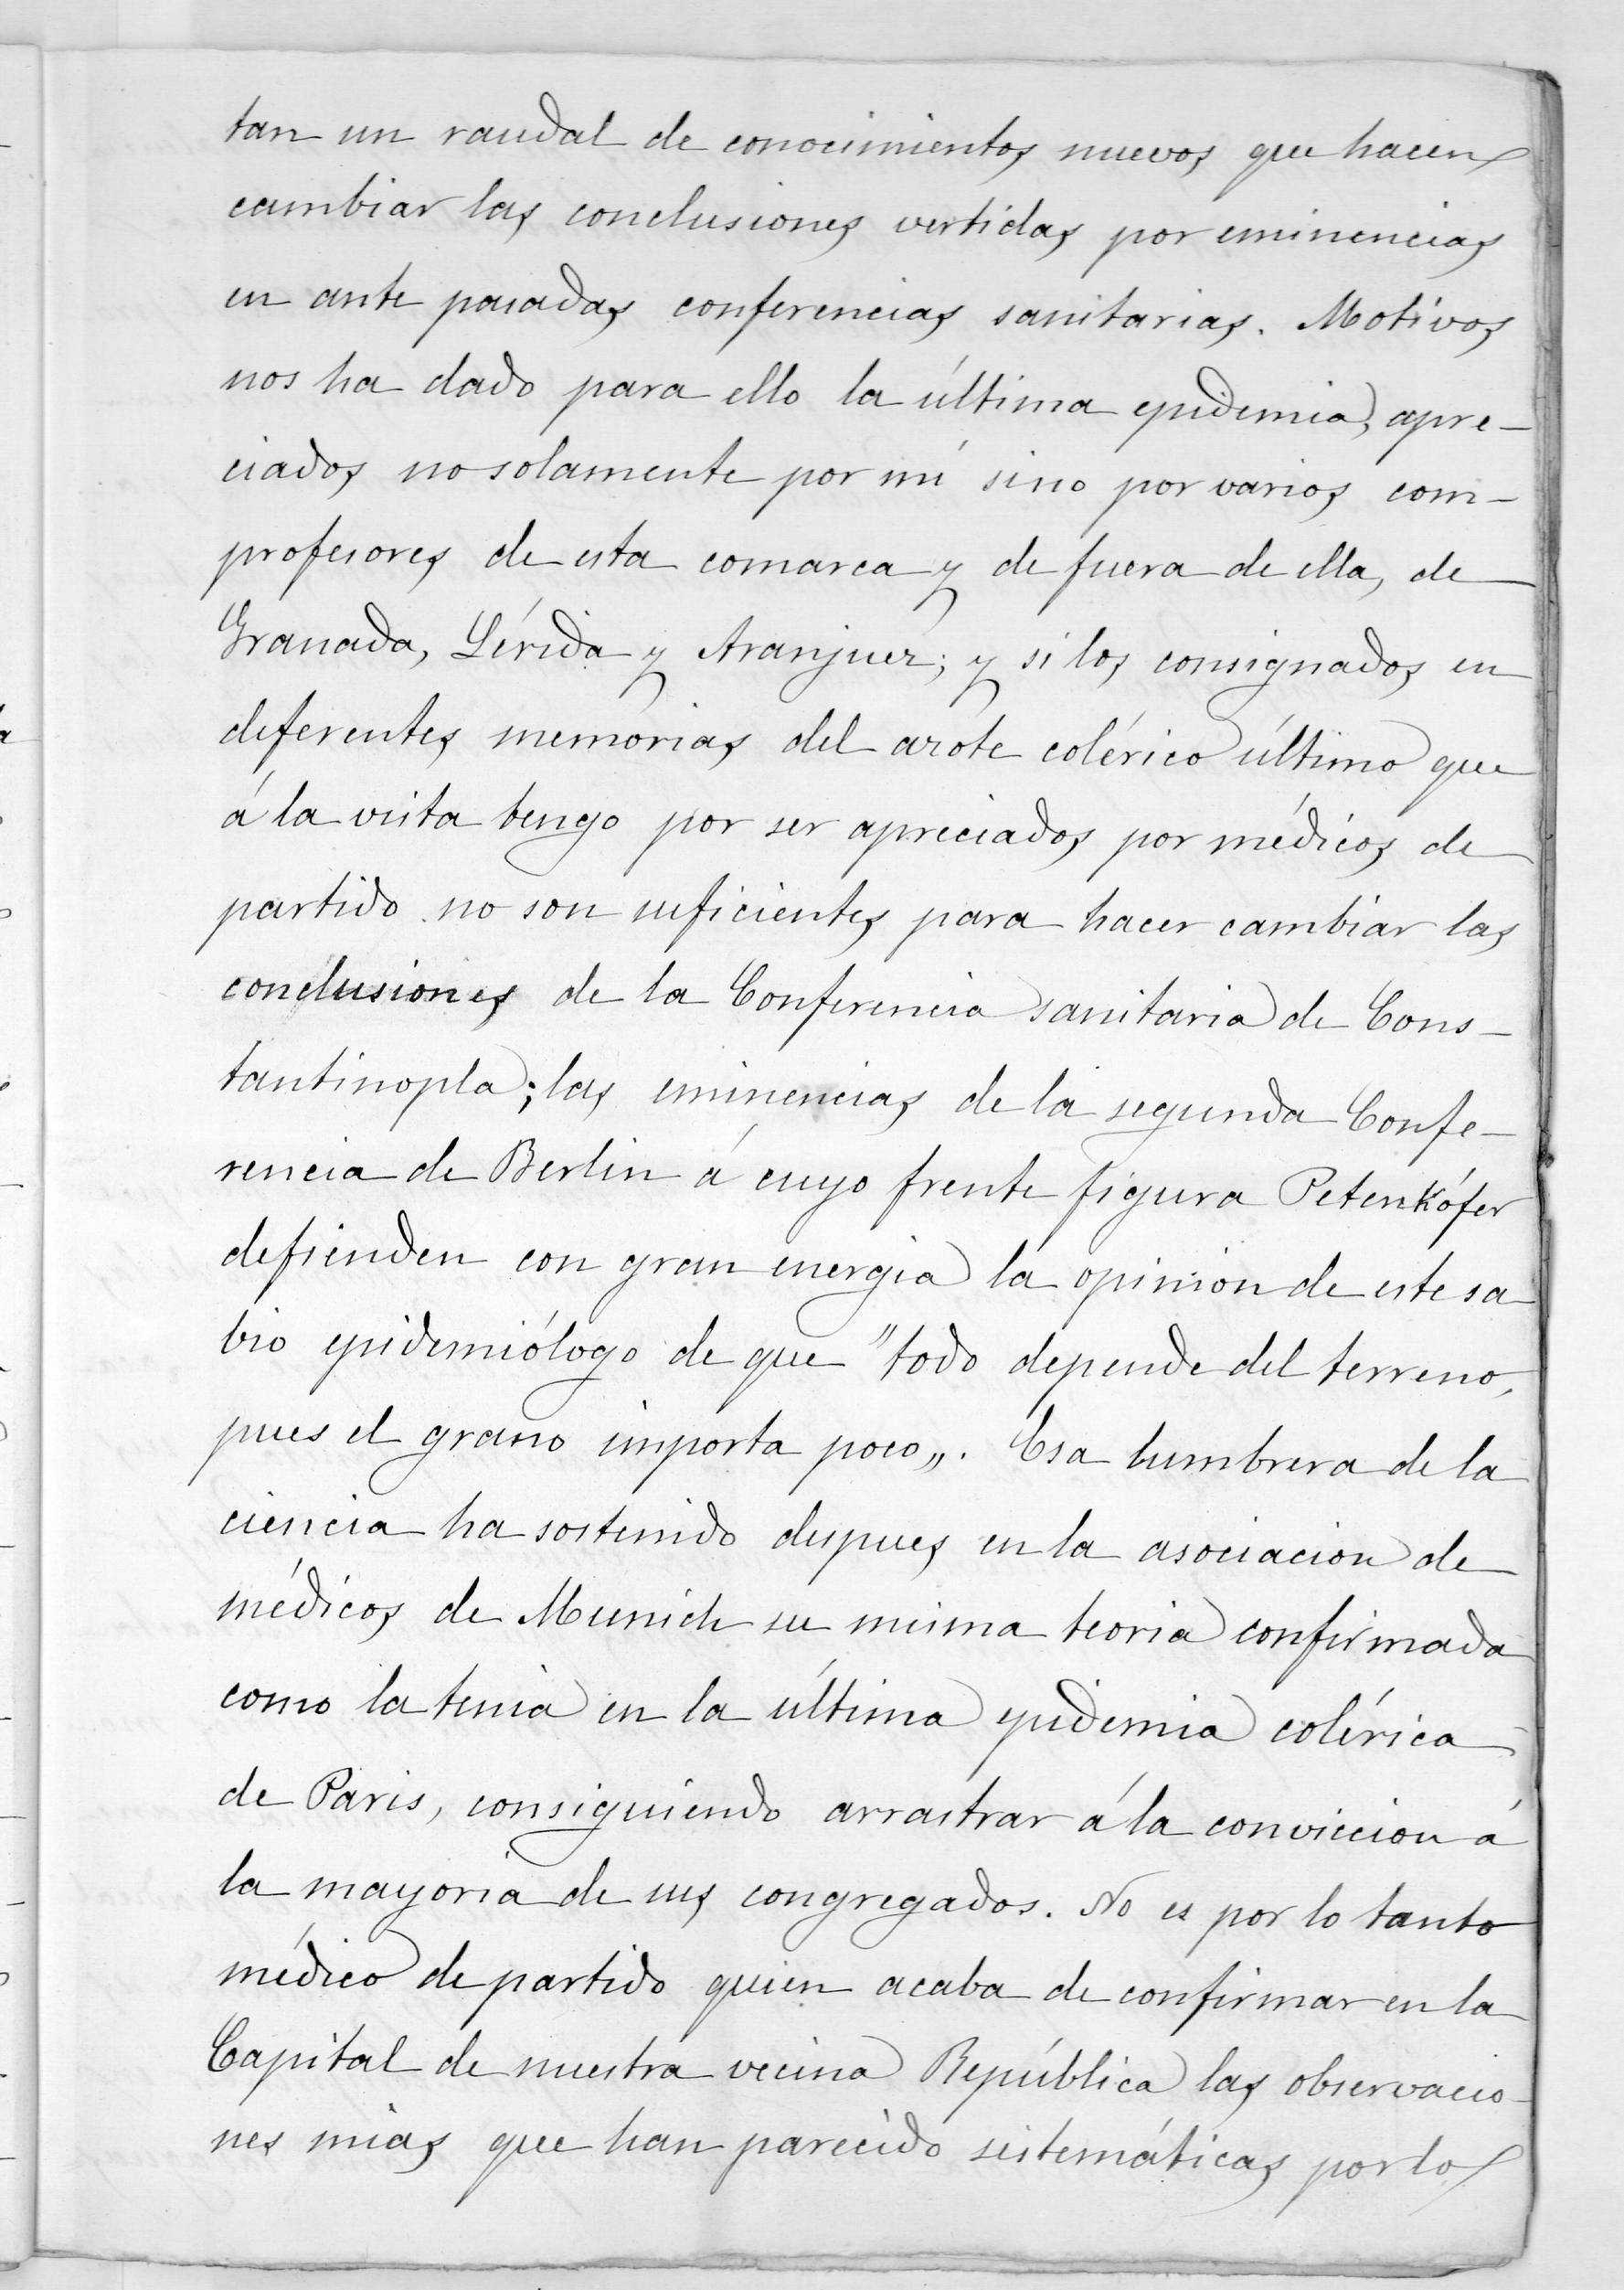 tan un raudal de conocimientos nuevos que hacen
cambiar las conclusiones vertidas por eminencias
en ante pasadas conferencias sanitarias. Motivos
nos ha dado para ello la última epidemia, apre-
ciados no solamente por mí sino por varios com-
profesores de esta comarca y de fuera de ella, de
Granada, Lérida y Aranjuez; y si los consignados en
deferentes memorias del azote colérico último que
á la vista tengo por ser apreciados por médicos de
partido no son suficientes para hacer cambiar las
conclusiones de la Conferencia sanitaria de Cons-
tantinopla; las eminencias de la segunda Confe-
rencia de Berlin á cuyo frente figura Petenkófer
defienden con gran energia la opinion de este sa
bio epidemiólogo de que "todo depende del terreno,
pues el grano importa poco„. Esa lumbrera de la
ciencia ha sostenido despues en la asociacion de
médicos de Munich su misma teoria confirmada
como la tenia en la última epidemia colérica
de Paris, consiguiendo arrastrar á la conviccion á
la mayoria de sus congregados. No es por lo tanto
médico de partido quien acaba de confirmar en la
Capital de nuestra vecina República las observacio
nes mias que han parecido sistemáticas por lo